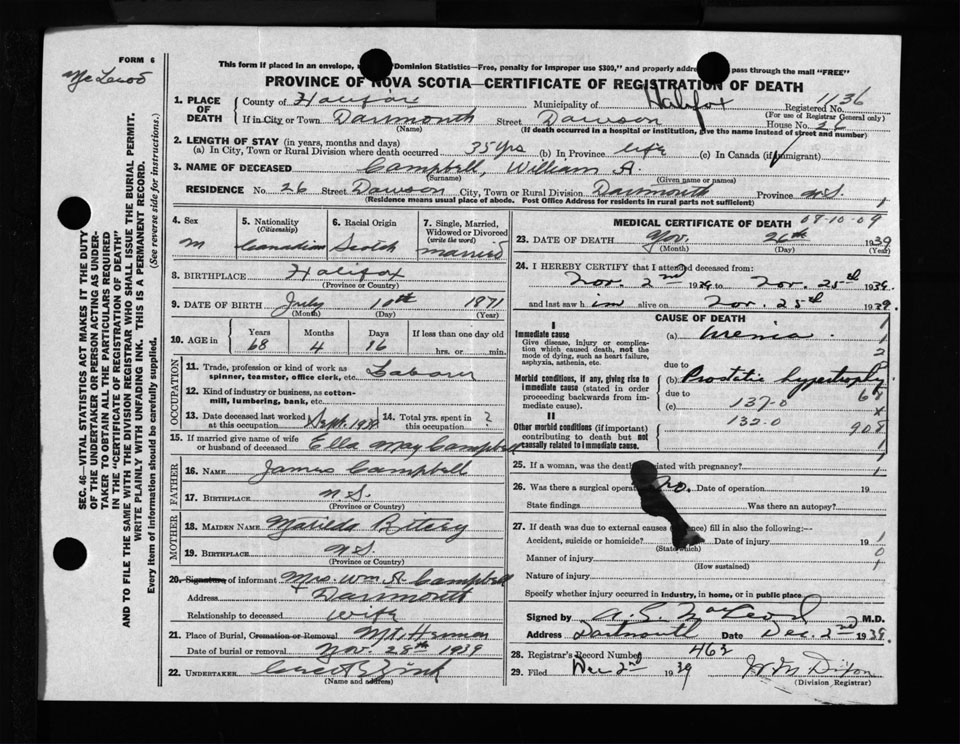 FORM 6
McLeod
This form if placed in an envelope, "Dominion Statistics—Free, penalty for improper use $300," and properly addre pass through the mail "FREE"
PROVINCE OF NOVA SCOTIA—CERTIFICATE OF REGISTRATION OF DEATH
1. PLACE OF DEATH County of Halifax Municipality of Halifax Registered No. 1136
(For use of Registrar General only)
If in City or Town Dartmouth Street Dawson House No. 26
(Name) (If death occurred in a hospital or institution, give the name instead of street and number)
2. LENGTH OF STAY (in years, months and days)
(a) In City, Town or Rural Division where death occurred 35 yrs (b) In Province life (c) In Canada (if immigrant)
3. NAME OF DECEASED Campbell, William A.
(Surname) (Given name or names)
RESIDENCE No. 26 Street Dawson City, Town or Rural Division Dartmouth Province N.S.
(Residence means usual place of abode. Post Office Address for residents in rural parts not sufficient) 1
4. Sex M
5. Nationality (Citizenship) Canadian
6. Racial Origin Scotch
7. Single, Married, Widowed or Divorced (write the word) married
8. BIRTHPLACE Halifax
(Province or Country)
9. DATE OF BIRTH July 10th 1871
(Month) (Day) (Year)
10. AGE in Years 68 Months 4 Days 16 If less than one day old
hrs. or min.
OCCUPATION
11. Trade, profession or kind of work as spinner, teamster, office clerk, etc. Labourer
12. Kind of industry or business, as cotton-mill, lumbering, bank, etc.
13. Date deceased last worked at this occupation Sept.
14. Total yrs. spent in this occupation ?
15. If married give name of wife or husband of deceased Ella May Campbell
FATHER
16. NAME James Campbell
17. BIRTHPLACE N.S.
(Province or Country)
MOTHER
18. MAIDEN NAME Matilda
19. BIRTHPLACE N.S.
(Province or Country)
20. Signature of informant Mrs. Wm A. Campbell
Address Dartmouth
Relationship to deceased wife
21. Place of Burial, Cremation or Removal Mt. Hermon
Date of burial or removal Nov. 28th 1939
22. UNDERTAKER Zink
(Name and address)
MEDICAL CERTIFICATE OF DEATH 08-10-09
23. DATE OF DEATH Nov. 26th 1939
(Month) (Day) (Year)
24. I HEREBY CERTIFY that I attended deceased from:
Nov. 2nd 1939 to Nov. 25th 1939.
and last saw him alive on Nov. 25th 1939.
CAUSE OF DEATH 1
I
Immediate cause
Give disease, injury or complication which caused death, not the mode of dying, such as heart failure, asphyxia, asthenia, etc.
(a) Uremia 1
2
due to
Morbid conditions, if any, giving rise to immediate cause (stated in order proceeding backwards from immediate cause).
(b) Prostatic hypertrophy
due to 68
(c) 137-0 X
II
132-0 908
Other morbid conditions (if important) contributing to death but not causally related to immediate cause. 1
25. If a woman, was the death associated with pregnancy? 1
26. Was there a surgical operation no. Date of operation 19
State findings Was there an autopsy?
27. If death was due to external causes (violence) fill in also the following:—
Accident, suicide or homicide? Date of injury 19 1
(State which) 0
Manner of injury 1
(How sustained)
Nature of injury
Specify whether injury occurred in industry, in home, or in public place.
Signed by M.D.
Address Dartmouth Date Dec. 2nd 1939.
28. Registrar's Record Number 463
29. Filed Dec 2nd 1939 Dixon
(Division Registrar)
SEC. 46—VITAL STATISTICS ACT MAKES IT THE DUTY
OF THE UNDERTAKER OR PERSON ACTING AS UNDERTAKER TO OBTAIN ALL THE PARTICULARS REQUIRED
IN THE "CERTIFICATE OF REGISTRATION OF DEATH"
AND TO FILE THE SAME WITH THE DIVISION REGISTRAR WHO SHALL ISSUE THE BURIAL PERMIT.
WRITE PLAINLY WITH UNFADING INK. THIS IS A PERMANENT RECORD.
Every item of information should be carefully supplied. (See reverse side for instructions.)